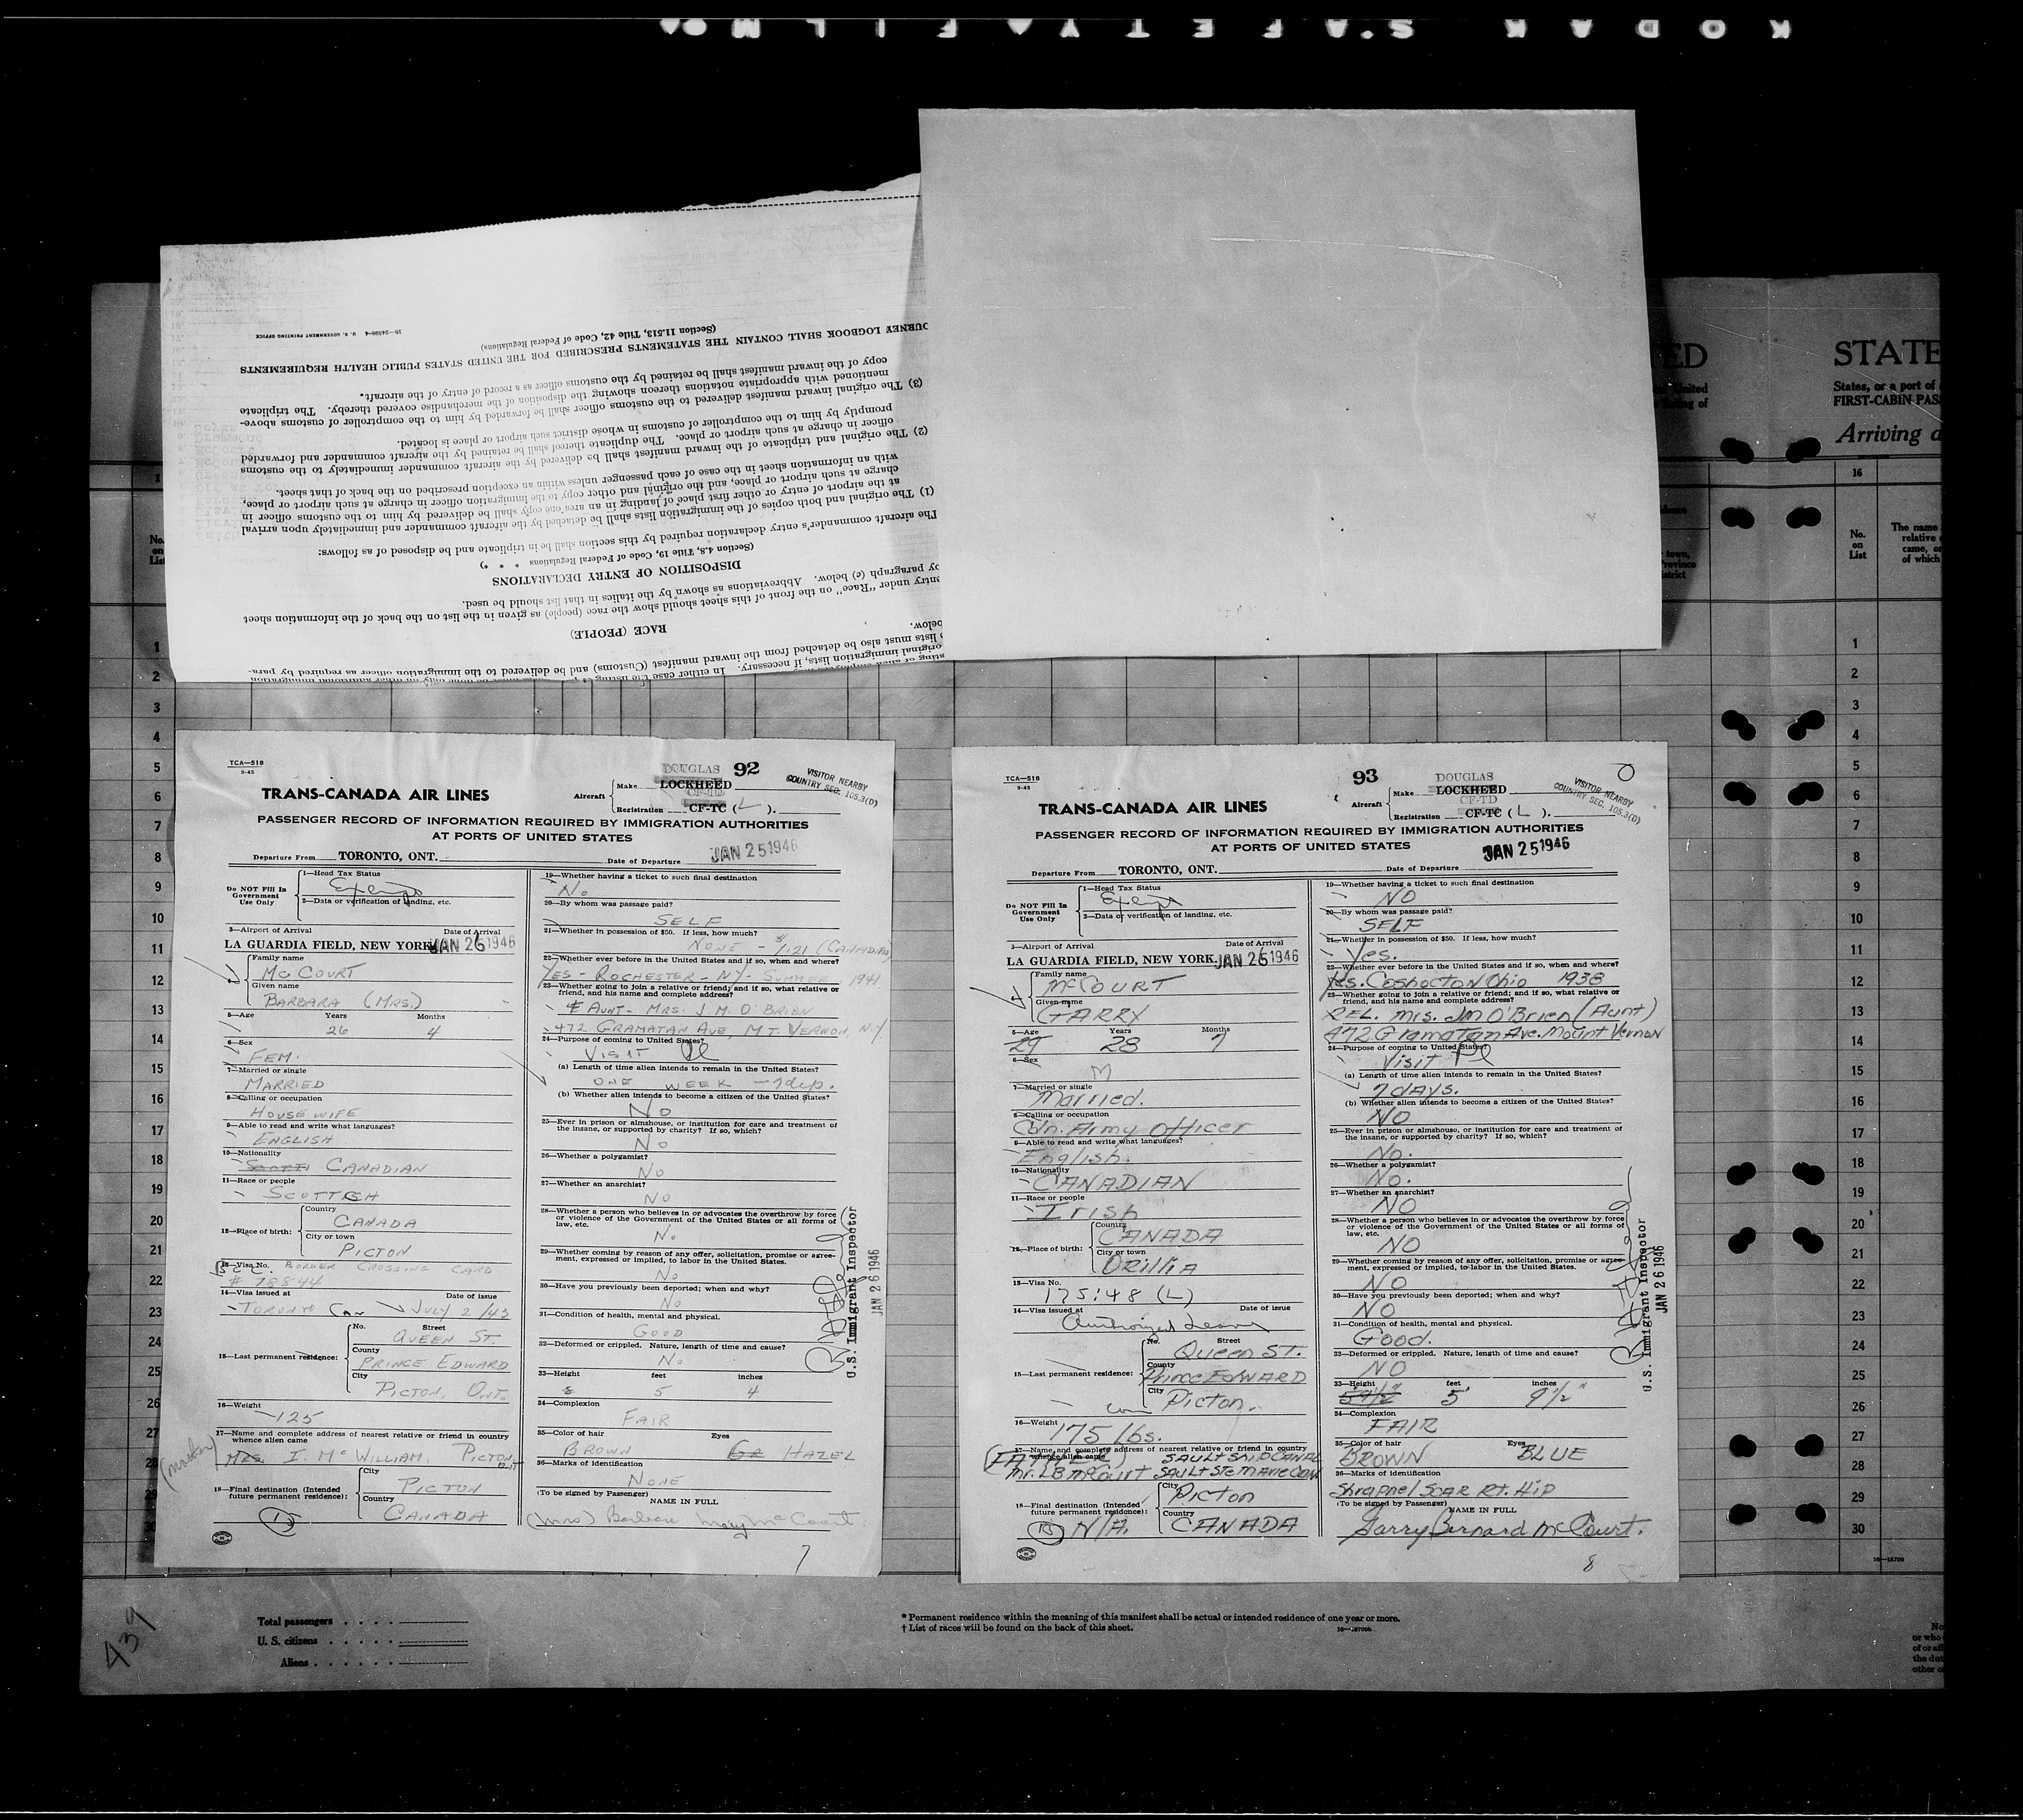 KODAK SAFETY FILM
OURNEY LOGBOOK SHALL CONTAIN THE STATEMENTS PRESCRIBED FOR THE UNITED STATES PUBLIC HEALTH REQUIREMENTS
(Section 11.513, Title 42, Code of Federal Regulations)
16—24598-4 U. S. GOVERNMENT PRINTING OFFICE
(3) The original inward manifest delivered to the customs officer shall be forwarded by him to the comptroller of customs above-
mentioned with appropriate notations thereon showing the disposition of the merchandise covered thereby. The triplicate
copy of the inward manifest shall be retained by the customs officer as a record of entry of the aircraft.
(2) The original and triplicate of the inward manifest shall be delivered by the aircraft commander immediately to the customs
officer in charge at such airport or place. The duplicate thereof shall be retained by the aircraft commander and forwarded
promptly by him to the comptroller of customs in whose district such airport or place is located.
(1) The original and both copies of the immigration lists shall be detached by the aircraft commander and immediately upon arrival
at the airport of entry or other first place of landing in an area one copy shall be delivered by him to the customs officer in
charge at such airport or place, and the original and other copy to the immigration officer in charge at such airport or place,
with an information sheet in the case of each passenger unless within an exception prescribed on the back of that sheet.
The aircraft commander's entry declaration required by this section shall be in triplicate and be disposed of as follows:
(Section 4.8, Title 19, Code of Federal Regulations * * *)
DISPOSITION OF ENTRY DECLARATIONS
by paragraph (c) below. Abbreviations as shown by the italics in that list should be used.
entry under "Race" on the front of this sheet should show the race (people) as given in the list on the back of the information sheet
RACE (PEOPLE)
below.
lists must also be detached from the inward manifest (Customs) and be delivered to the immigration officer as required by para-
original immigration lists, if necessary. In either case the
TED
STATE
United
States, or a port of
FIRST-CABIN PAS
Arriving a
16
No. on List
The name
relative
came, or
of which
TCA—518
9-45
TRANS-CANADA AIR LINES
DOUGLAS 92
Aircraft
Make LOCKHEED
CF-TD
Registration CF-TC ( L ).
VISITOR NEARBY
COUNTRY SEC. 105.3(D)
PASSENGER RECORD OF INFORMATION REQUIRED BY IMMIGRATION AUTHORITIES
AT PORTS OF UNITED STATES
Departure From TORONTO, ONT. Date of Departure JAN 25 1946
Do NOT Fill In Government Use Only
1—Head Tax Status
Exempt
2—Data or verification of landing, etc.
3—Airport of Arrival Date of Arrival
LA GUARDIA FIELD, NEW YORK JAN 26 1946
Family name
McCOURT
Given name
BARBARA (MRS.)
5—Age Years Months
26 4
6—Sex
FEM.
7—Married or single
MARRIED
8—Calling or occupation
HOUSEWIFE
9—Able to read and write what languages?
ENGLISH
10—Nationality
CANADIAN
11—Race or people
SCOTTISH
12—Place of birth:
Country
CANADA
City or town
PICTON
13—Visa No. BORDER CROSSING CARD
# 78844
14—Visa issued at Date of issue
TORONTO Can JULY 2/43
15—Last permanent residence:
No. Street
QUEEN ST.
County
PRINCE EDWARD
City
PICTON, ONT.
16—Weight
125
17—Name and complete address of nearest relative or friend in country
whence alien came
(mother) MRS. I. McWILLIAM, PICTON, ONT
18—Final destination (Intended future permanent residence):
City
PICTON
Country
CANADA
19—Whether having a ticket to such final destination
No
20—By whom was passage paid?
SELF
21—Whether in possession of $50. If less, how much?
NONE - $1.21 (CANADIAN)
22—Whether ever before in the United States and if so, when and where?
YES - ROCHESTER - NY - SUMMER 1941
23—Whether going to join a relative or friend; and if so, what relative or
friend, and his name and complete address?
AUNT - MRS. J. M. O'BRIEN
472 GRAMATAN AVE, MT. VERNON, N.Y.
24—Purpose of coming to United States?
VISIT
(a) Length of time alien intends to remain in the United States?
ONE WEEK
(b) Whether alien intends to become a citizen of the United States?
NO
25—Ever in prison or almshouse, or institution for care and treatment of
the insane, or supported by charity? If so, which?
NO
26—Whether a polygamist?
NO
27—Whether an anarchist?
NO
28—Whether a person who believes in or advocates the overthrow by force
or violence of the Government of the United States or all forms of
law, etc.
No
29—Whether coming by reason of any offer, solicitation, promise or agree-
ment, expressed or implied, to labor in the United States.
No
30—Have you previously been deported; when and why?
No
31—Condition of health, mental and physical.
GOOD
32—Deformed or crippled. Nature, length of time and cause?
No
33—Height feet inches
5 4
34—Complexion
FAIR
35—Color of hair Eyes
BROWN HAZEL
36—Marks of identification
NONE
(To be signed by Passenger) NAME IN FULL
(Mrs) Barbara Mary McCourt
7
U.S. Immigrant Inspector
JAN 26 1946
TCA—518
9-45
TRANS-CANADA AIR LINES
93 DOUGLAS
Aircraft
Make LOCKHEED
CF-TD
Registration CF-TC ( L ).
VISITOR NEARBY
COUNTRY SEC. 105.3(D)
PASSENGER RECORD OF INFORMATION REQUIRED BY IMMIGRATION AUTHORITIES
AT PORTS OF UNITED STATES
Departure From TORONTO, ONT. Date of Departure JAN 25 1946
Do NOT Fill In Government Use Only
1—Head Tax Status
Exempt
2—Data or verification of landing, etc.
3—Airport of Arrival Date of Arrival
LA GUARDIA FIELD, NEW YORK. JAN 26 1946
Family name
McCOURT
Given name
GARRY
5—Age Years Months
29 28 7
6—Sex
M
7—Married or single
Married.
8—Calling or occupation
Cdn. Army Officer
9—Able to read and write what languages?
English.
10—Nationality
CANADIAN
11—Race or people
Irish
12—Place of birth:
Country
CANADA
City or town
Orillia
13—Visa No.
175:48 (L)
14—Visa issued at Date of issue
Authorized Leave
15—Last permanent residence:
No. Street
Queen ST.
County
Prince EDWARD
City
Picton.
16—Weight
175 lbs.
17—Name and complete address of nearest relative or friend in country
whence alien came
(FATHER) SAULT SHIP CANAL
Mr. L B McCourt SAULT STE MARIE CAN
18—Final destination (Intended future permanent residence):
City
Picton
Country
N/A. CANADA
19—Whether having a ticket to such final destination
NO
20—By whom was passage paid?
SELF
21—Whether in possession of $50. If less, how much?
Yes.
22—Whether ever before in the United States and if so, when and where?
Yes. Coshocton Ohio 1938
23—Whether going to join a relative or friend; and if so, what relative or
friend, and his name and complete address?
REL. Mrs. JM O'Brien (Aunt)
472 Gramatan Ave. Mount Vernon
24—Purpose of coming to United States?
Visit
(a) Length of time alien intends to remain in the United States?
7 days.
(b) Whether alien intends to become a citizen of the United States?
NO
25—Ever in prison or almshouse, or institution for care and treatment of
the insane, or supported by charity? If so, which?
No.
26—Whether a polygamist?
No.
27—Whether an anarchist?
NO
28—Whether a person who believes in or advocates the overthrow by force
or violence of the Government of the United States or all forms of
law, etc.
NO
29—Whether coming by reason of any offer, solicitation, promise or agree-
ment, expressed or implied, to labor in the United States.
NO
30—Have you previously been deported; when and why?
NO
31—Condition of health, mental and physical.
Good.
32—Deformed or crippled. Nature, length of time and cause?
NO
33—Height feet inches
5' 9½"
34—Complexion
FAIR
35—Color of hair Eyes
BROWN BLUE
36—Marks of identification
Shrapnel SCAR RT. Hip
(To be signed by Passenger) NAME IN FULL
Garry Bernard McCourt.
8
U.S. Immigrant Inspector
JAN 26 1946
439
Total passengers
U. S. citizens
Aliens
* Permanent residence within the meaning of this manifest shall be actual or intended residence of one year or more.
† List of races will be found on the back of this sheet.
No
or who
of or aff
the dut
other o